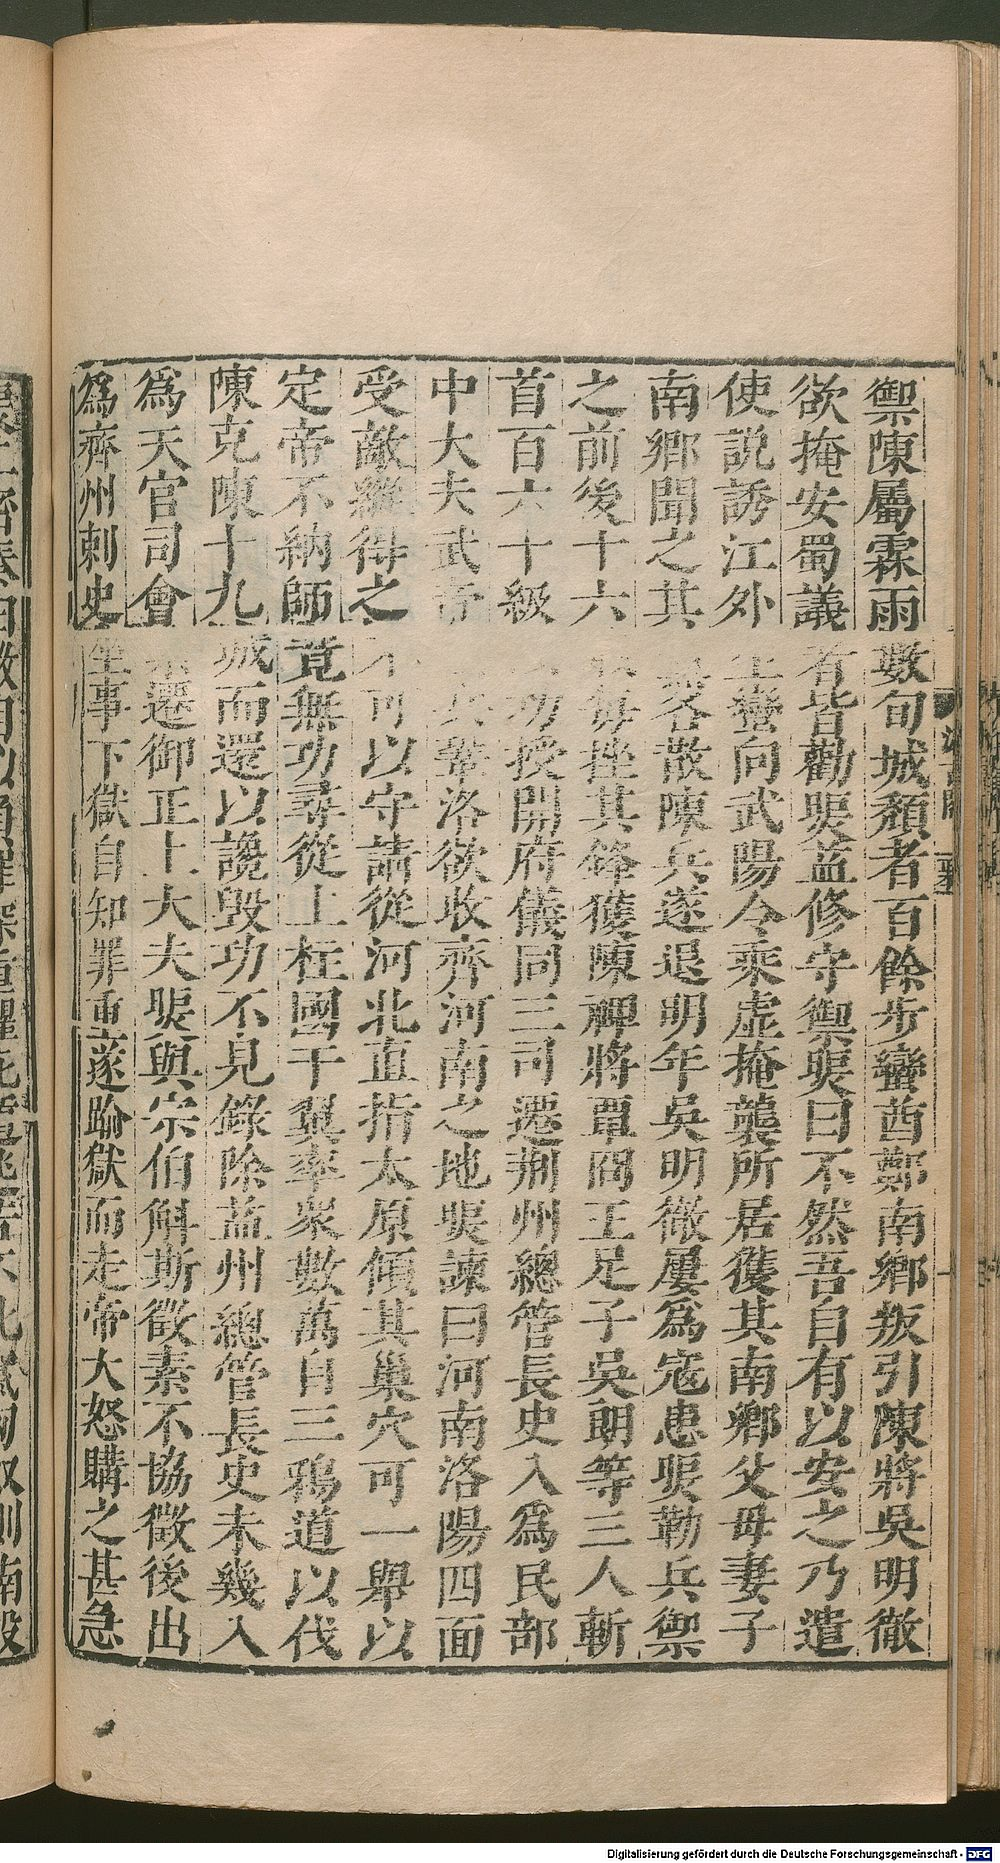 禦陳屬霖雨數旬城頹者百餘步蠻酋鄭南鄉叛引陳將吳明徹
欲掩安蜀議者皆勸㬂益修守禦㬂曰不然吾自有以安之乃遣
使說誘江外生蠻向武陽令乘虛掩襲所居獲其南鄉父母妻子
南鄉聞之其黨各散陳兵遂退明年吳明徹屢爲寇患㬂勒兵禦
之前後十六戰每挫其鋒獲陳裨將覃冏王足子吳朗等三人斬
首百六十級以功授開府儀同三司遷荊州總管長史入爲民部
中大夫武帝出兵鞏洛欲收齊河南之地㬂諫曰河南洛陽四面
受敵縱得之不可以守請從河北直指太原傾其巢穴可一舉以
定帝不納師竟無功尋從上柱國于翼率衆數萬自三鵶道以伐
陳克陳十九城而還以讒毀功不見錄除益州總管長史未幾入
爲天官司會遷御正上大夫㬂與宗伯斛斯徵素不協徵後出
爲齊州刺史坐事下獄自知罪重遂踰獄而走帝大怒購之甚急
Digitalisierung gefördert durch die Deutsche Forschungsgemeinschaft - DFG